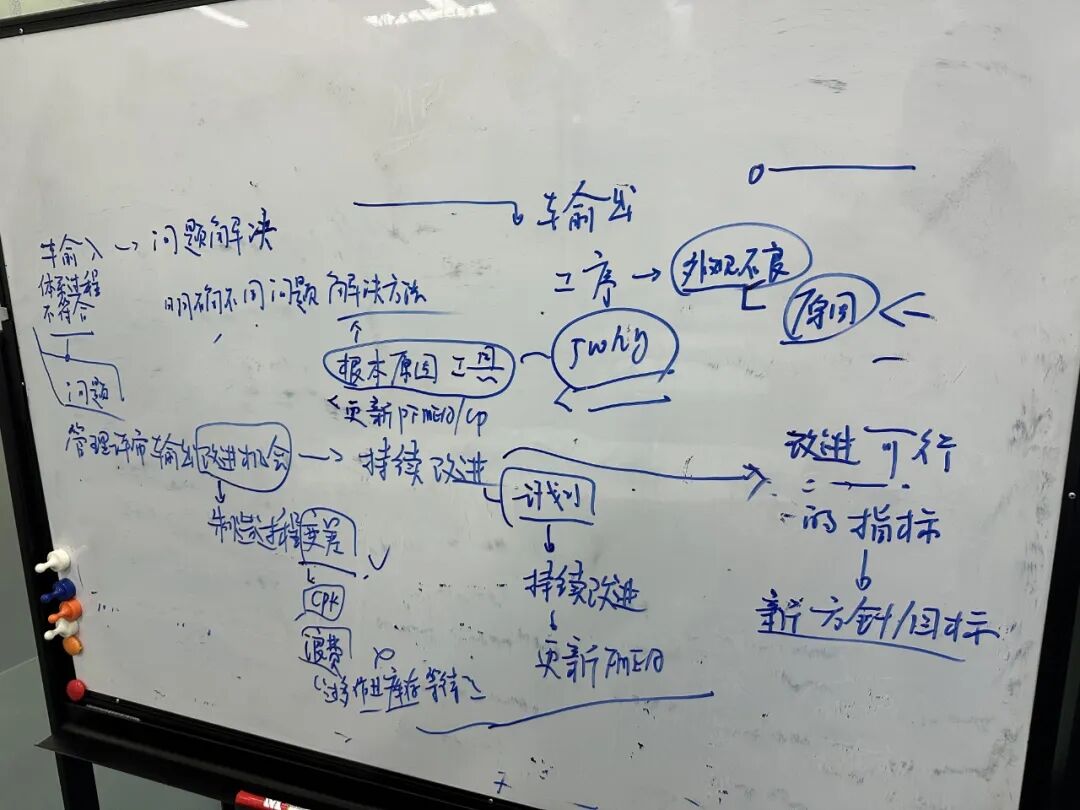 车输出
车输入 → 问题解决
体系过程
不符合
问题
明确不同问题解决方法
根本原因
5why
更新PFMEA/CP
工序 → 外观不良
原因
管理评审输出改进机会 → 持续改进
计划
制造过程变差
CPK
浪费
库存等待
持续改进
更新FMEA
改进可行
的指标
新方针/目标